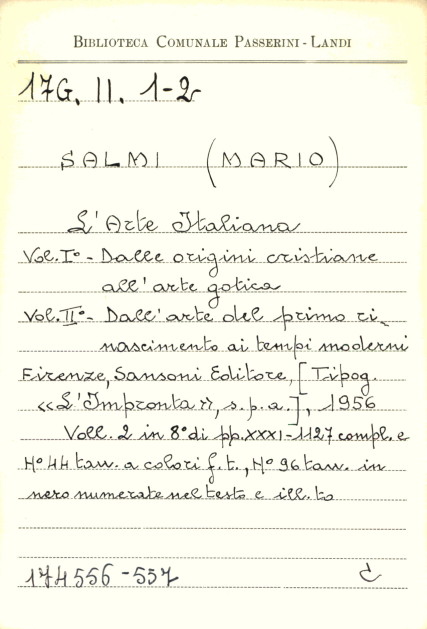 BIBLIOTECA COMUNALE PASSERINI - LANDI
17G. II. 1-2
SALMI (MARIO)
L'Arte Italiana
Vol. I° - Dalle origini cristiane
all'arte gotica
Vol. II° - Dall'arte del primo ri_
nascimento ai tempi moderni
Firenze, Sansoni Editore, [Tipog.
«L'Impronta», s.p.a.], 1956
Voll. 2 in 8° di pp. XXXI-1127 compl. e
N° 44 tav. a colori f. t., N° 96 tav. in
nero numerate nel testo e ill. to
174556-557